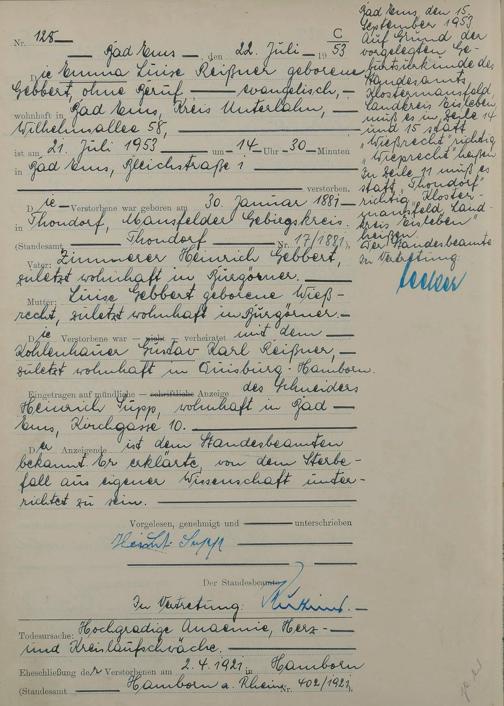 Nr. 125
C
Bad Ems, den 22. Juli 1953
Die Emma Luise Reißner geborene
Gebbert, ohne Beruf — evangelisch, —
wohnhaft in Bad Ems, Kreis Unterlahn, —
Wilhelmsallee 58,
ist am 21. Juli 1953 um 14 Uhr 30 Minuten
in Bad Ems, Bleichstraße 1
verstorben.
Die Verstorbene war geboren am 30. Januar 1881
in Thondorf, Mansfelder Gebirgskreis.
(Standesamt Thondorf Nr. 17/1881).
Vater: Zimmerer Heinrich Gebbert,
zuletzt wohnhaft in Burgörner.
Mutter: Luise Gebbert geborene Wieß-
recht, zuletzt wohnhaft in Burgörner.
Die Verstorbene war — nicht — verheiratet mit dem
Kohlenhauer Gustav Karl Reißner,
zuletzt wohnhaft in Duisburg-Hamborn.
Eingetragen auf mündliche — schriftliche Anzeige des Schneiders
Heinrich Supp, wohnhaft in Bad
Ems, Kirchgasse 10.
Der Anzeigende ist dem Standesbeamten
bekannt. Er erklärte, von dem Sterbe-
fall aus eigener Wissenschaft unter-
richtet zu sein.
Vorgelesen, genehmigt und unterschrieben
Heinr. Supp
Der Standesbeamte
In Vertretung:
Todesursache: Hochgradige Anaemie, Herz-
und Kreislaufschwäche.
Eheschließung der Verstorbenen am 2.4.1921 in Hamborn
(Standesamt Hamborn a. Rhein Nr. 402/1921).
Bad Ems den 15.
September 1953
Auf Grund der
vorgelegten Ge-
burtsurkunde des
Standesamts
Klostermansfeld,
Landkreis Eisleben
muß es in Zeile 14
und 15 statt
"Wießrecht" richtig
"Wieprecht" heißen
In Zeile 11 muß es
statt "Thondorf"
richtig "Kloster-
mansfeld, Land-
kreis Eisleben"
heißen.
Der Standesbeamte
In Vertretung: